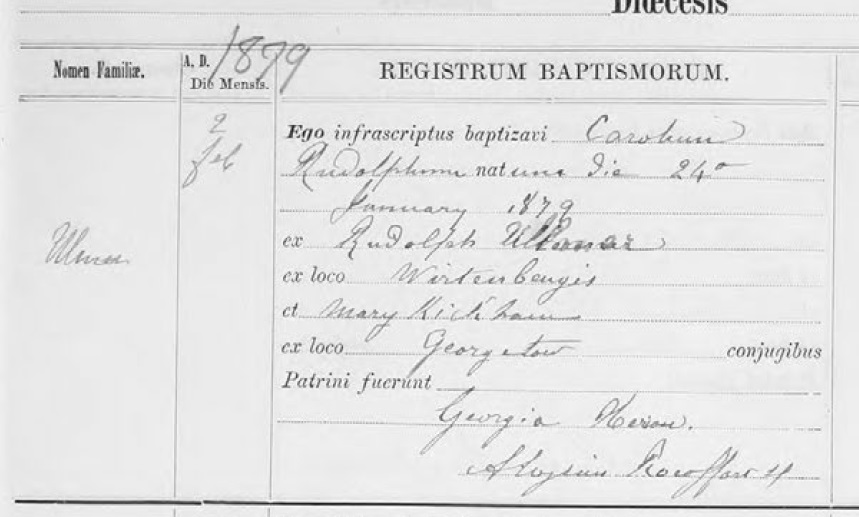 Diœcesis
Nomen Familiæ.
A. D. 1879
Die Mensis.
REGISTRUM BAPTISMORUM.
2
feb
Ego infrascriptus baptizavi Carolum
Rudolphum natum die 24º
January 1879
ex Rudolph
ex loco Wirtenbergis
et Mary Kickham
ex loco Georgetow conjugibus
Patrini fuerunt
Georgia
Aloysius